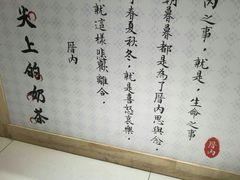 內之事，就是，生命之事
朝暮暮都是為了厝內思與念．
春夏秋冬，就是喜怒哀樂．
就這樣悲歡離合．
厝內
尖上的奶茶
厝內